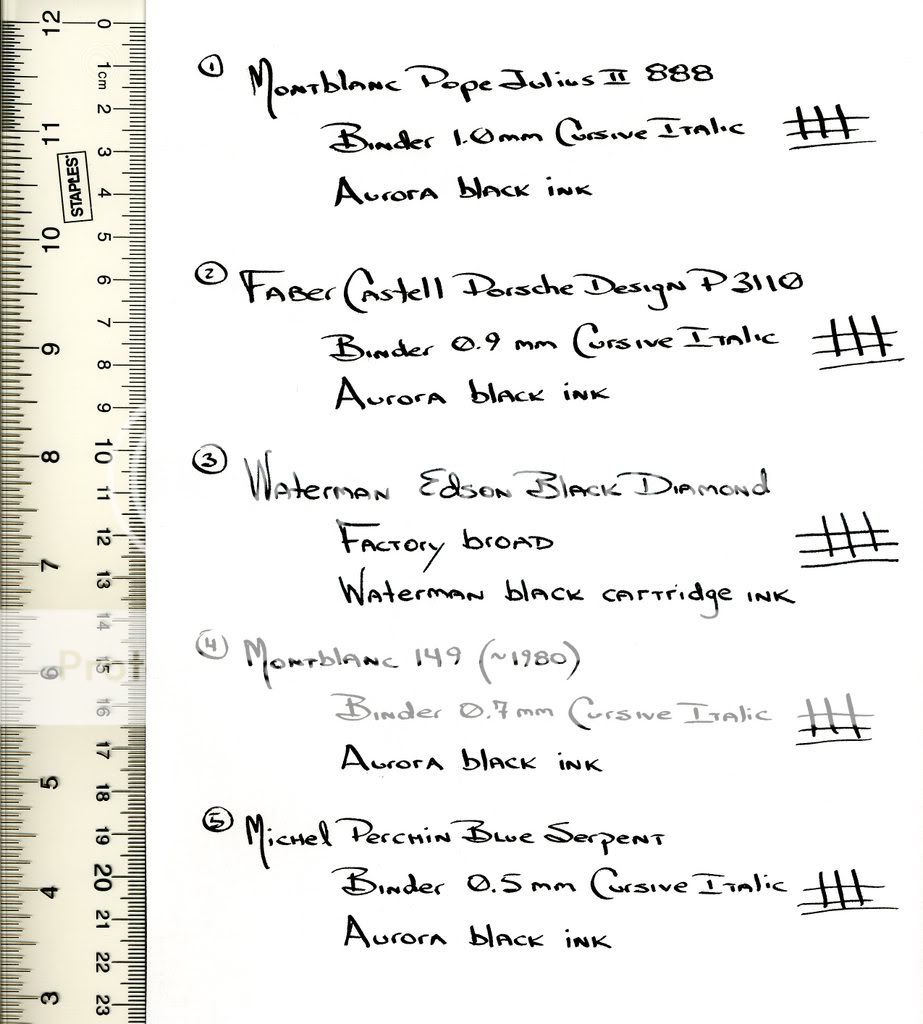 ① Montblanc Pope Julius II 888
Binder 1.0mm Cursive Italic
Aurora black ink
② Faber Castell Porsche Design P3110
Binder 0.9 mm Cursive Italic
Aurora black ink
③ Waterman Edson Black Diamond
Factory broad
Waterman black cartridge ink
④ Montblanc 149 (~1980)
Binder 0.7mm Cursive Italic
Aurora black ink
⑤ Michel Perchin Blue Serpent
Binder 0.5mm Cursive Italic
Aurora black ink
STAPLES
12
11
10
9
8
7
6
5
4
3
0
1cm
2
3
4
5
6
7
8
9
10
11
12
13
14
15
16
17
18
19
20
21
22
23
Prot